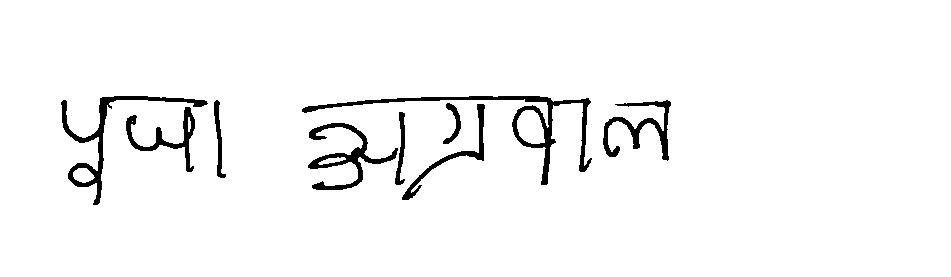 पूजा अग्रवाल